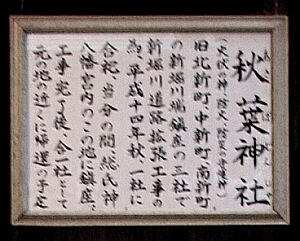 秋葉神社
(火伏の神 防火、防災の守護神)
旧北新町、中新町、南新町
の新堀川端鎮座の三社で
新堀川道路拡張工事の
為、平成十四年秋一社に
合祀、当分の間総氏神
八幡宮内のこの地に鎮座、
工事完了後、合一社として
元の地の近くに帰還の予定